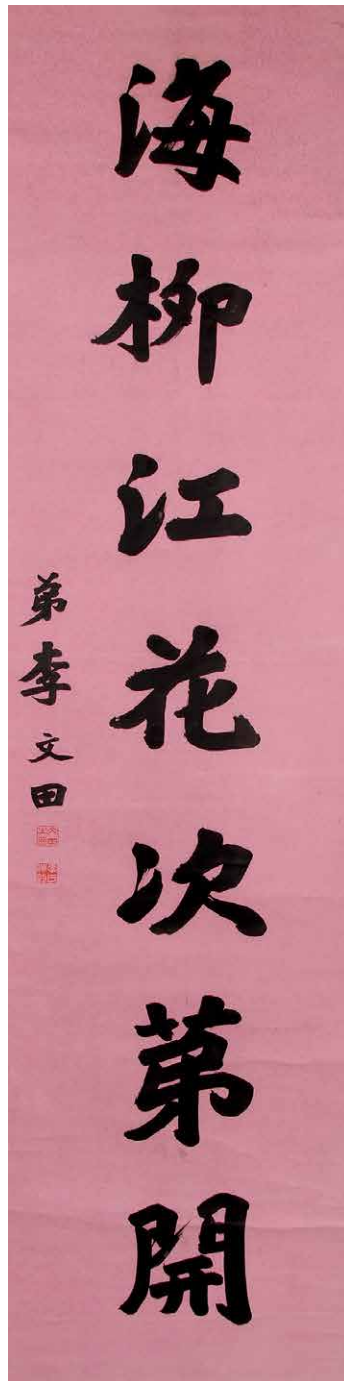 海柳江花次苐開
弟李文田